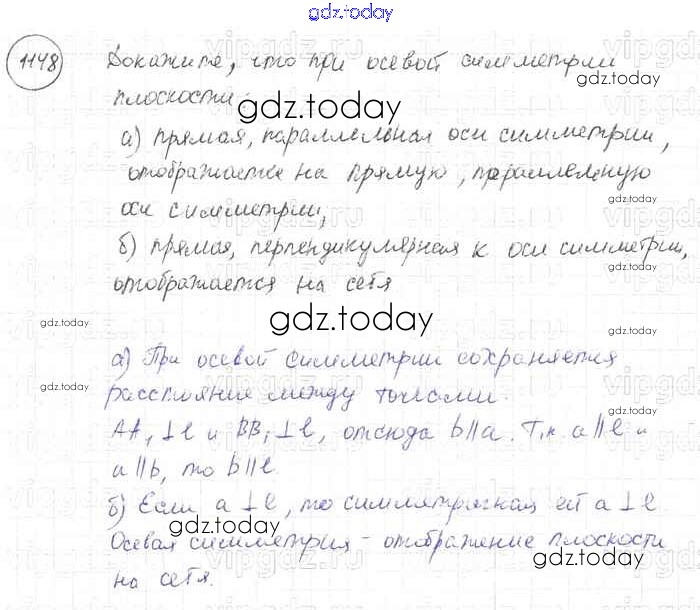 gdz.today
1148 Докажите, что при осевой симметрии
плоскости:
gdz.today
а) прямая, параллельная оси симметрии,
отображается на прямую, параллельную
оси симметрии,
б) прямая, перпендикулярная к оси симметрии,
отображается на себя
gdz.today
а) При осевой симметрии сохраняется
расстояние между точками.
AA₁⊥l и BB₁⊥l, отсюда b||a. Т.к. a||l и
a||b, то b||l.
б) Если a⊥l, то симметричная ей a⊥l
gdz.today
Осевая симметрия - отображение плоскости
на себя.